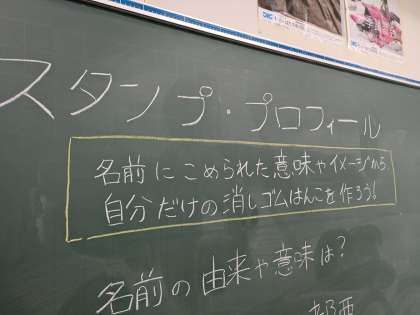 スタンプ・プロフィール
名前にこめられた意味やイメージから、
自分だけの消しゴムはんこを作ろう!
名前の由来や意味は?